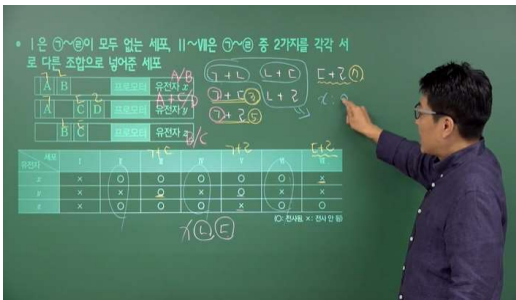 • Ⅰ은 ㉠~㉣이 모두 없는 세포, Ⅱ~Ⅶ은 ㉠~㉣ 중 2가지를 각각 서
로 다른 조합으로 넣어준 세포
ㄱ ㄹ
A B 프로모터 유전자 x A/B
ㄱ ㄷ ㄹ
A C D 프로모터 유전자 y A+C/D
ㄴ ㄷ
B C 프로모터 유전자 z B/C
ㄱ+ㄴ ㄴ+ㄷ ㄷ+ㄹ ⑦
ㄱ+ㄷ ③ ㄴ+ㄹ
ㄱ+ㄹ ⑤
x:
ㄱ+ㄷ ㄱ+ㄹ ㄷ+ㄹ
유전자 세포 Ⅰ Ⅱ Ⅲ Ⅳ Ⅴ Ⅵ Ⅶ
x × ○ ○ ○ ○ ○ ×
y × × ○ × ○ × ×
z × ○ ○ ○ × ○ ○
(○: 전사됨, ×: 전사 안 됨)
ㄱ ㄴ ㄷ